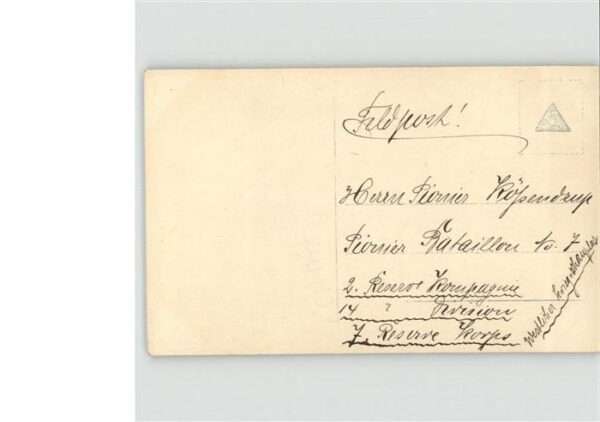 Feldpost!
Herrn Pionier Köpsendrup
Pionier Bataillon No. 7
2. Reserve Kompagnie
14 " Division
7. Reserve Korps
westlicher